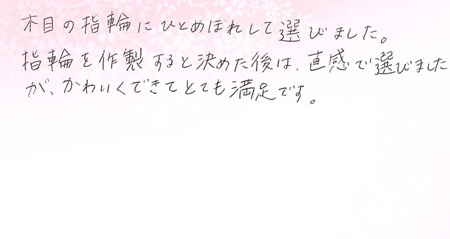 木目の指輪にひとめぼれして選びました。
指輪を作製すると決めた後は、直感で選びました
が、かわいくできてとても満足です。